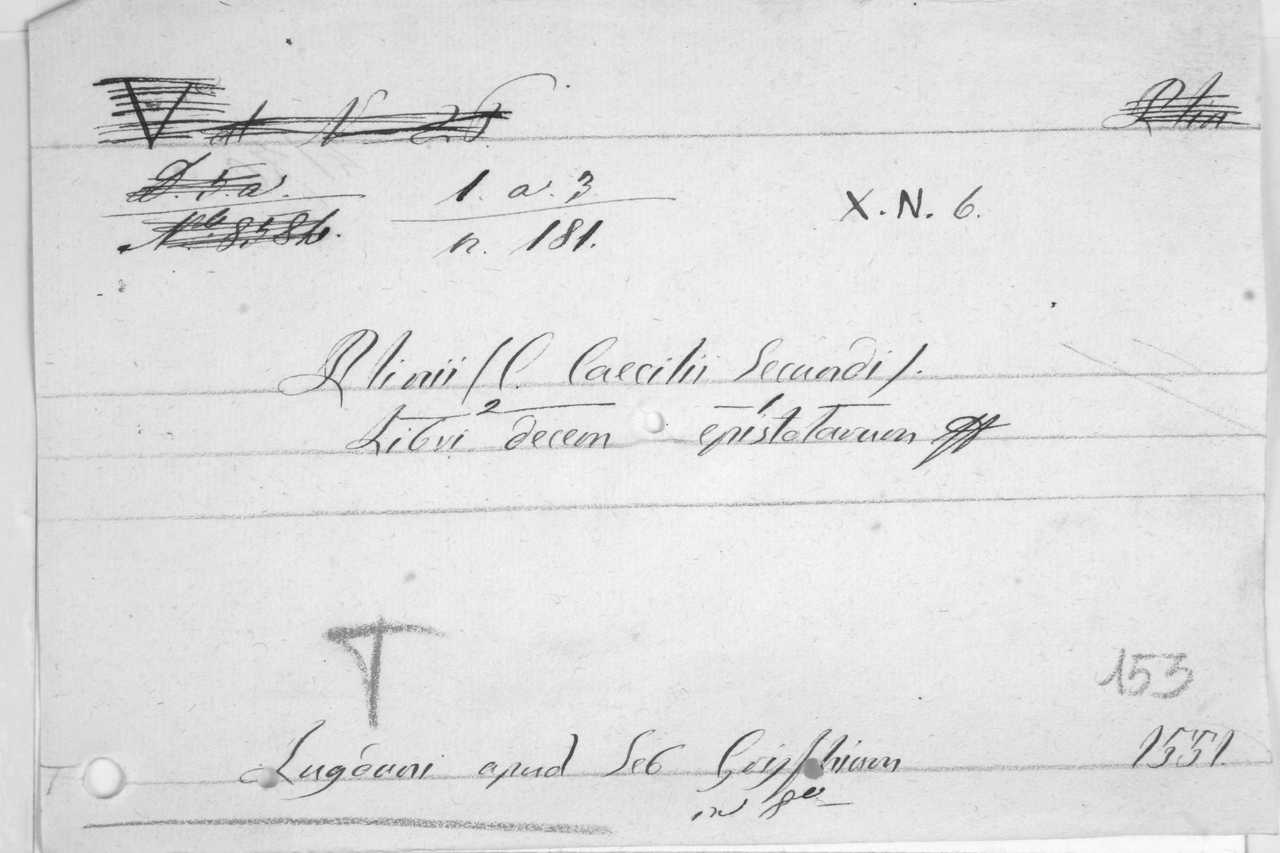 V at N 28 Plin
D. 5. a. 1. a. 3
Nro 8586. n. 181. X. N. 6.
Plinii (C. Caecilii Secundi).
2 1
Libri decem epistolarum
T
153
Lugduni apud Seb Gryphium 1551.
in 8vo